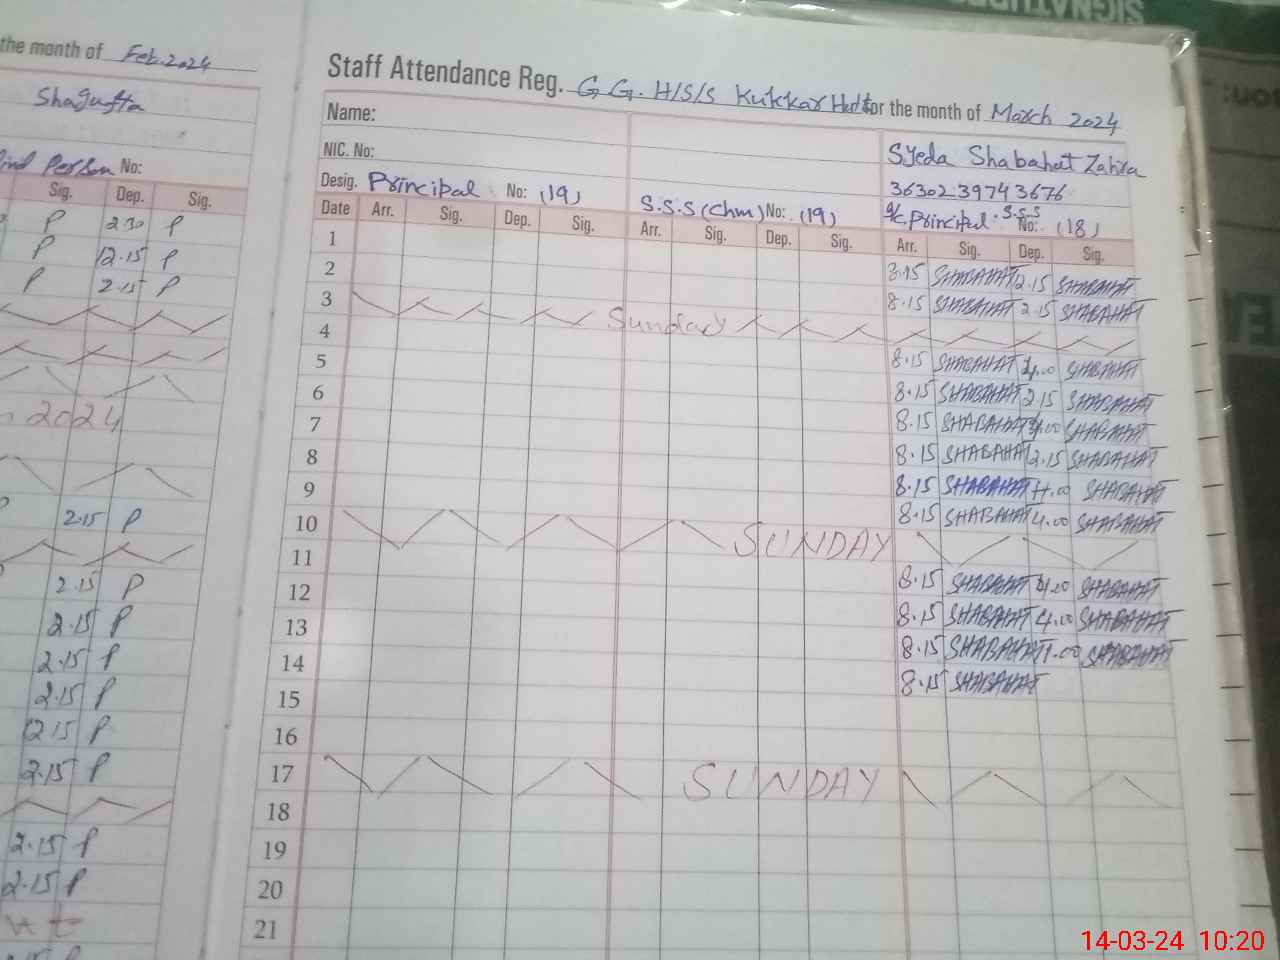 SIGNATURE
the month of Feb.2024
Shagufta
Person No:
Sig. Dep. Sig.
P 2.30 P
P 12.15 P
P 2.15 P
2024
2.15 P
2.15 P
2.15 P
2.15 P
2.15 P
2.15 P
2.15 P
2.15 P
2.15 P
Staff Attendance Reg. G.G. H/S/S Kukkar Hatta for the month of March 2024
Name: Syeda Shabahat Zahra
NIC. No: 36302-39743676
Desig. Principal No: (19) S.S.S (Chm) No: (19) I/C Principal. S.S.S No: (18)
Date Arr. Sig. Dep. Sig. Arr. Sig. Dep. Sig. Arr. Sig. Dep. Sig.
1 8.15 SHABAHAT 12.15 SHABAHAT
2 8.15 SHABAHAT 2.15 SHABAHAT
3 Sunday
4 8.15 SHABAHAT 4.00 SHABAHAT
5 8.15 SHABAHAT 2.15 SHABAHAT
6 8.15 SHABAHAT 4.00 SHABAHAT
7 8.15 SHABAHAT 2.15 SHABAHAT
8 8.15 SHABAHAT 4.00 SHABAHAT
9 8.15 SHABAHAT 4.00 SHABAHAT
10 SUNDAY
11 8.15 SHABAHAT 4.00 SHABAHAT
12 8.15 SHABAHAT 4.00 SHABAHAT
13 8.15 SHABAHAT 4.00 SHABAHAT
14 8.15 SHABAHAT
15
16
17 SUNDAY
18
19
20
21
14-03-24 10:20